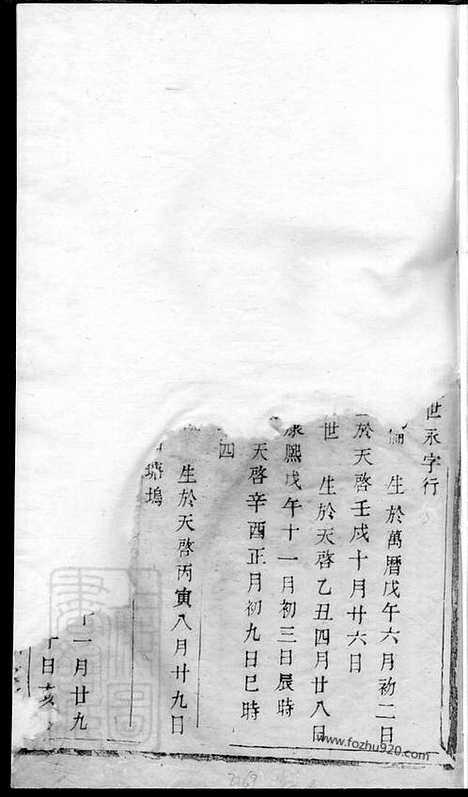 世永字行
生於萬曆戊午六月初二日
於天啓壬戌十月廿六日
世 生於天啓乙丑四月廿八日
康熙戊午十一月初三日辰時
天啓辛酉正月初九日巳時
四
生於天啓丙寅八月廿九日
塘塢
十一月廿九
日亥
www.fozhu920.com